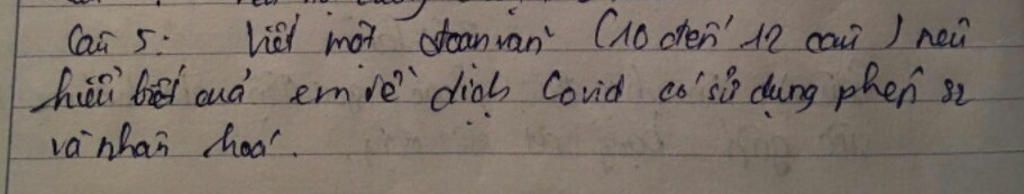 Câu 5: Viết một đoạn văn (10 đến 12 câu) nêu
hiểu biết quả em về dịch Covid có sử dụng phép so
và nhân hoá.